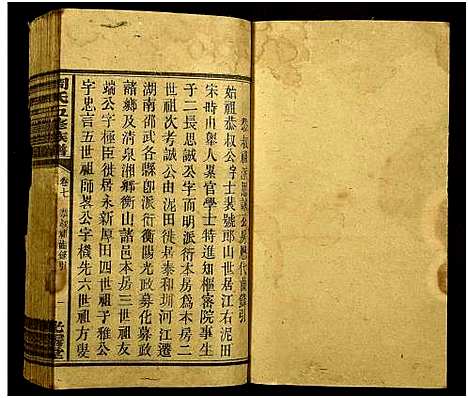 恭叔祖派思誠公房歷代曲錄引
始祖恭叔公字士裝號郎山世居江右泥田
宋時由舉人累官學士特進知樞密院事生
子二長思誠公字而明派衍本房爲本房二
世祖次考誠公由泥田徙居泰和珊河江遷
湖南邵武各縣卽派衍衡陽光政募化募政
諸鄉及清泉湘鄉衡山諸邑本房三世祖友
端公字極臣徙居永新厚田四世祖子雅公
字忠言五世祖師畧公字機先六世祖方變
周氏五修族譜
卷七
恭叔祖曲錄引
一